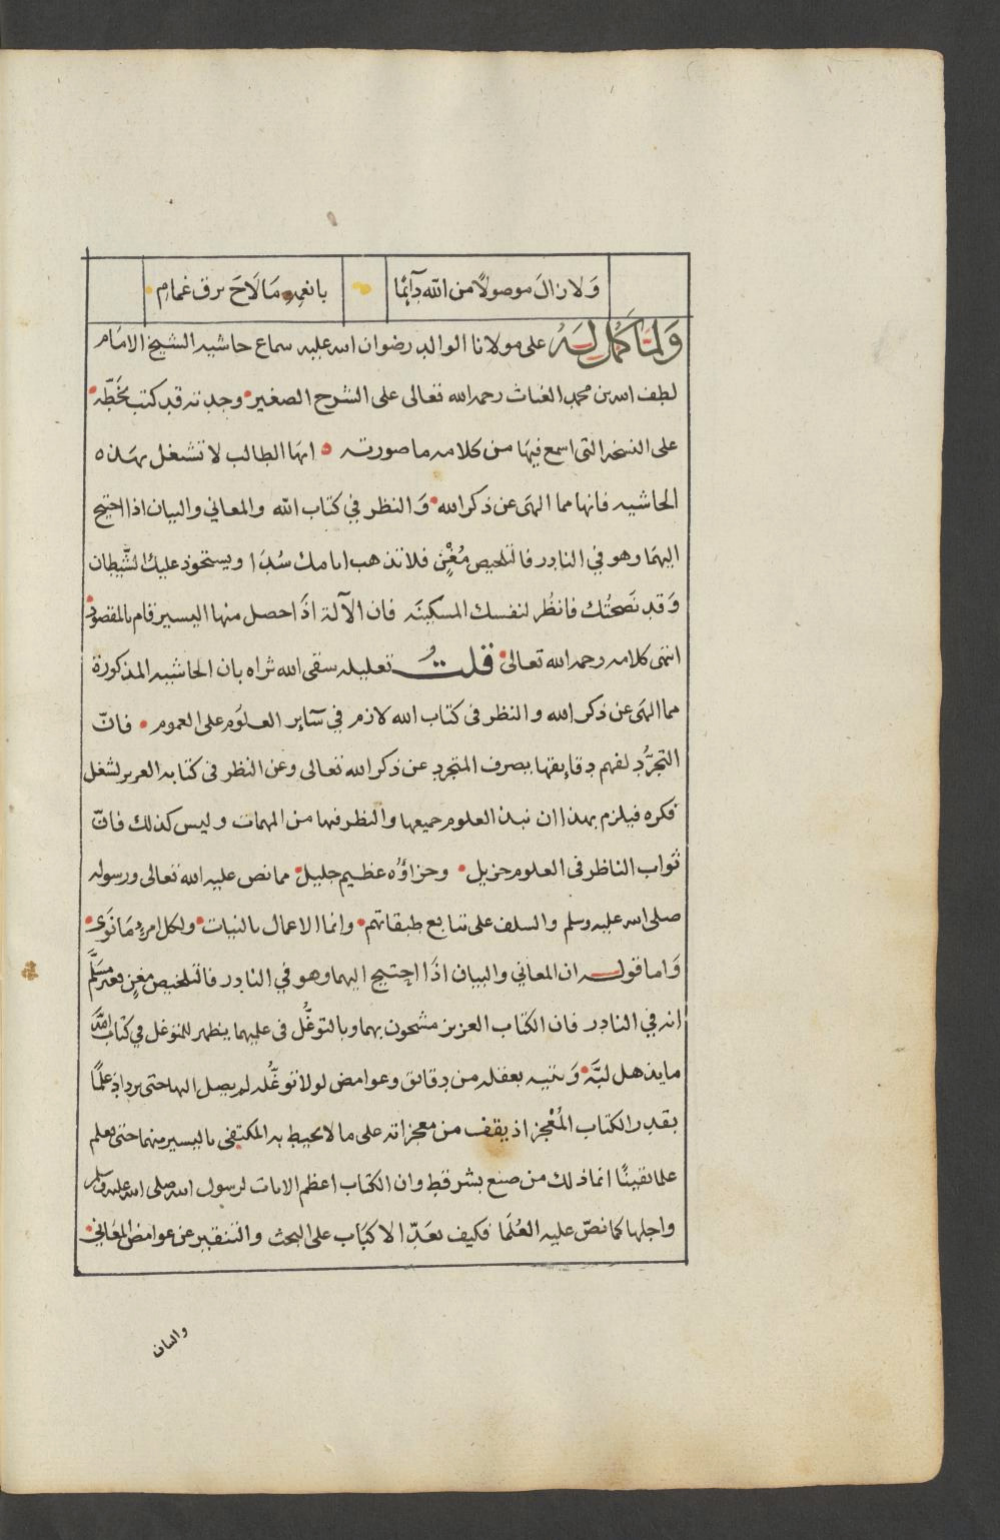 وَلا زالَ موصولاً من الله دآئِمًا بانعمٍ مَا لَاحَ برق غمامِ
وَلمَّا كَمُل لَهُ على مولانا الوالد رضوان الله عليه سماع حاشيه الشيخ الامام
لطف الله بن محمد الغياث رحمه الله تعالى على الشرح الصغير وجدته قد كتب بخَطِّه
على النسخه التي اسمع فيها من كلامه ما صورته ايها الطالب لا تشغل بهذه
الحاشيه فانها مما الهى عن ذكر الله وَالنظر في كتاب الله والمعاني والبيان اذا احتيج
اليهما وهو في النادر فالتلخيص مُغْنٍ فلا تذهب ايامك سُدَا ويستحوذ عليك الشيطان
وَقد نَصَحتُك فانظُر لنفسك المسكينَه فان الآلة اذَا حصل منها اليسير قام بالمقصود
انتهى كلامه رحمه الله تعالى قلتُ تعليله سقى الله ثراه بان الحاشيه المذكورة
مما الهى عن ذكر الله والنظر في كتاب الله لازم في سآير العلوم على العموم فانّ
التجرُّد لفهم دقايقها يصرف المتجرد عن ذكر الله تعالى وعن النظر في كتابه العزيز لشغل
فكره فيلزم بهذا ان نبذ العلوم جميعها والنظر فيها من المهمات وليس كذلك فانّ
ثواب الناظر في العلوم جزيل وجزاؤُه عظيم جليل مما نص عليه الله تعالى ورسوله
صلى الله عليه وسلم والسلف على تتابع طبقاتهم وانما الاعمال بالنيات ولكل امرءٍ مَا نَوَى
وَاما قوله ان المعاني والبيان اذَا احتيج اليهما وهو في النادر فالتلخيص مغنٍ فغير مسَلَّم
انه في النادر فان الكتاب العزيز مشحون بهما وبالتوغُّل في علمهما يظهر للمتوغل في كتاب الله
ما يذهل لبَّه وَيتيه بعقله من دقائق وغوامض لولا توغُّله لم يصل اليها حتى يزداد علمًا
بقدر الكتاب المُعْجز اذ يقف من معجزاته على ما لا يحيط به المكتفي باليسير منهما حتى يعلم
علما يقينًا انما ذلك من صنع بشر قط وان الكتاب اعظم الايات لرسول الله صلى الله عليه وسلم
واجلها كما نصّ عليه العُلمَا فكيف يعَدّ الاكبَاب على البحث والتنقير عن غوامض المعَاني
والبيان